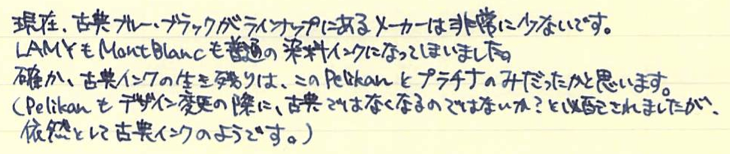 現在、古典ブルー・ブラックがラインナップにあるメーカーは非常に少ないです。
LAMYもMontBlancも普通の染料インクになってしまいました。
確か、古典インクの生き残りは、このPelikanとプラチナのみだったかと思います。
(Pelikanもデザイン変更の際に、古典ではなくなるのではないか？と心配されましたが、
依然として古典インクのようです。)